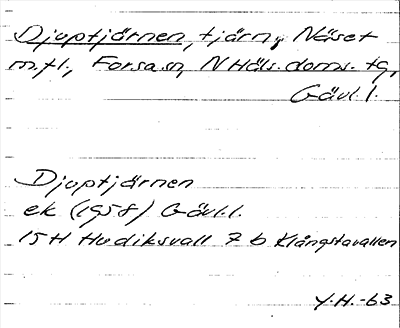 Djuptjärnen, tjärn, Näset
m.fl., Forsa sn, N Häls. doms. tg,
Gävl. l.
Djuptjärnen
ek (1958) Gävl.l.
15H Hudiksvall 7 b Klångstavallen
Y.H.-63